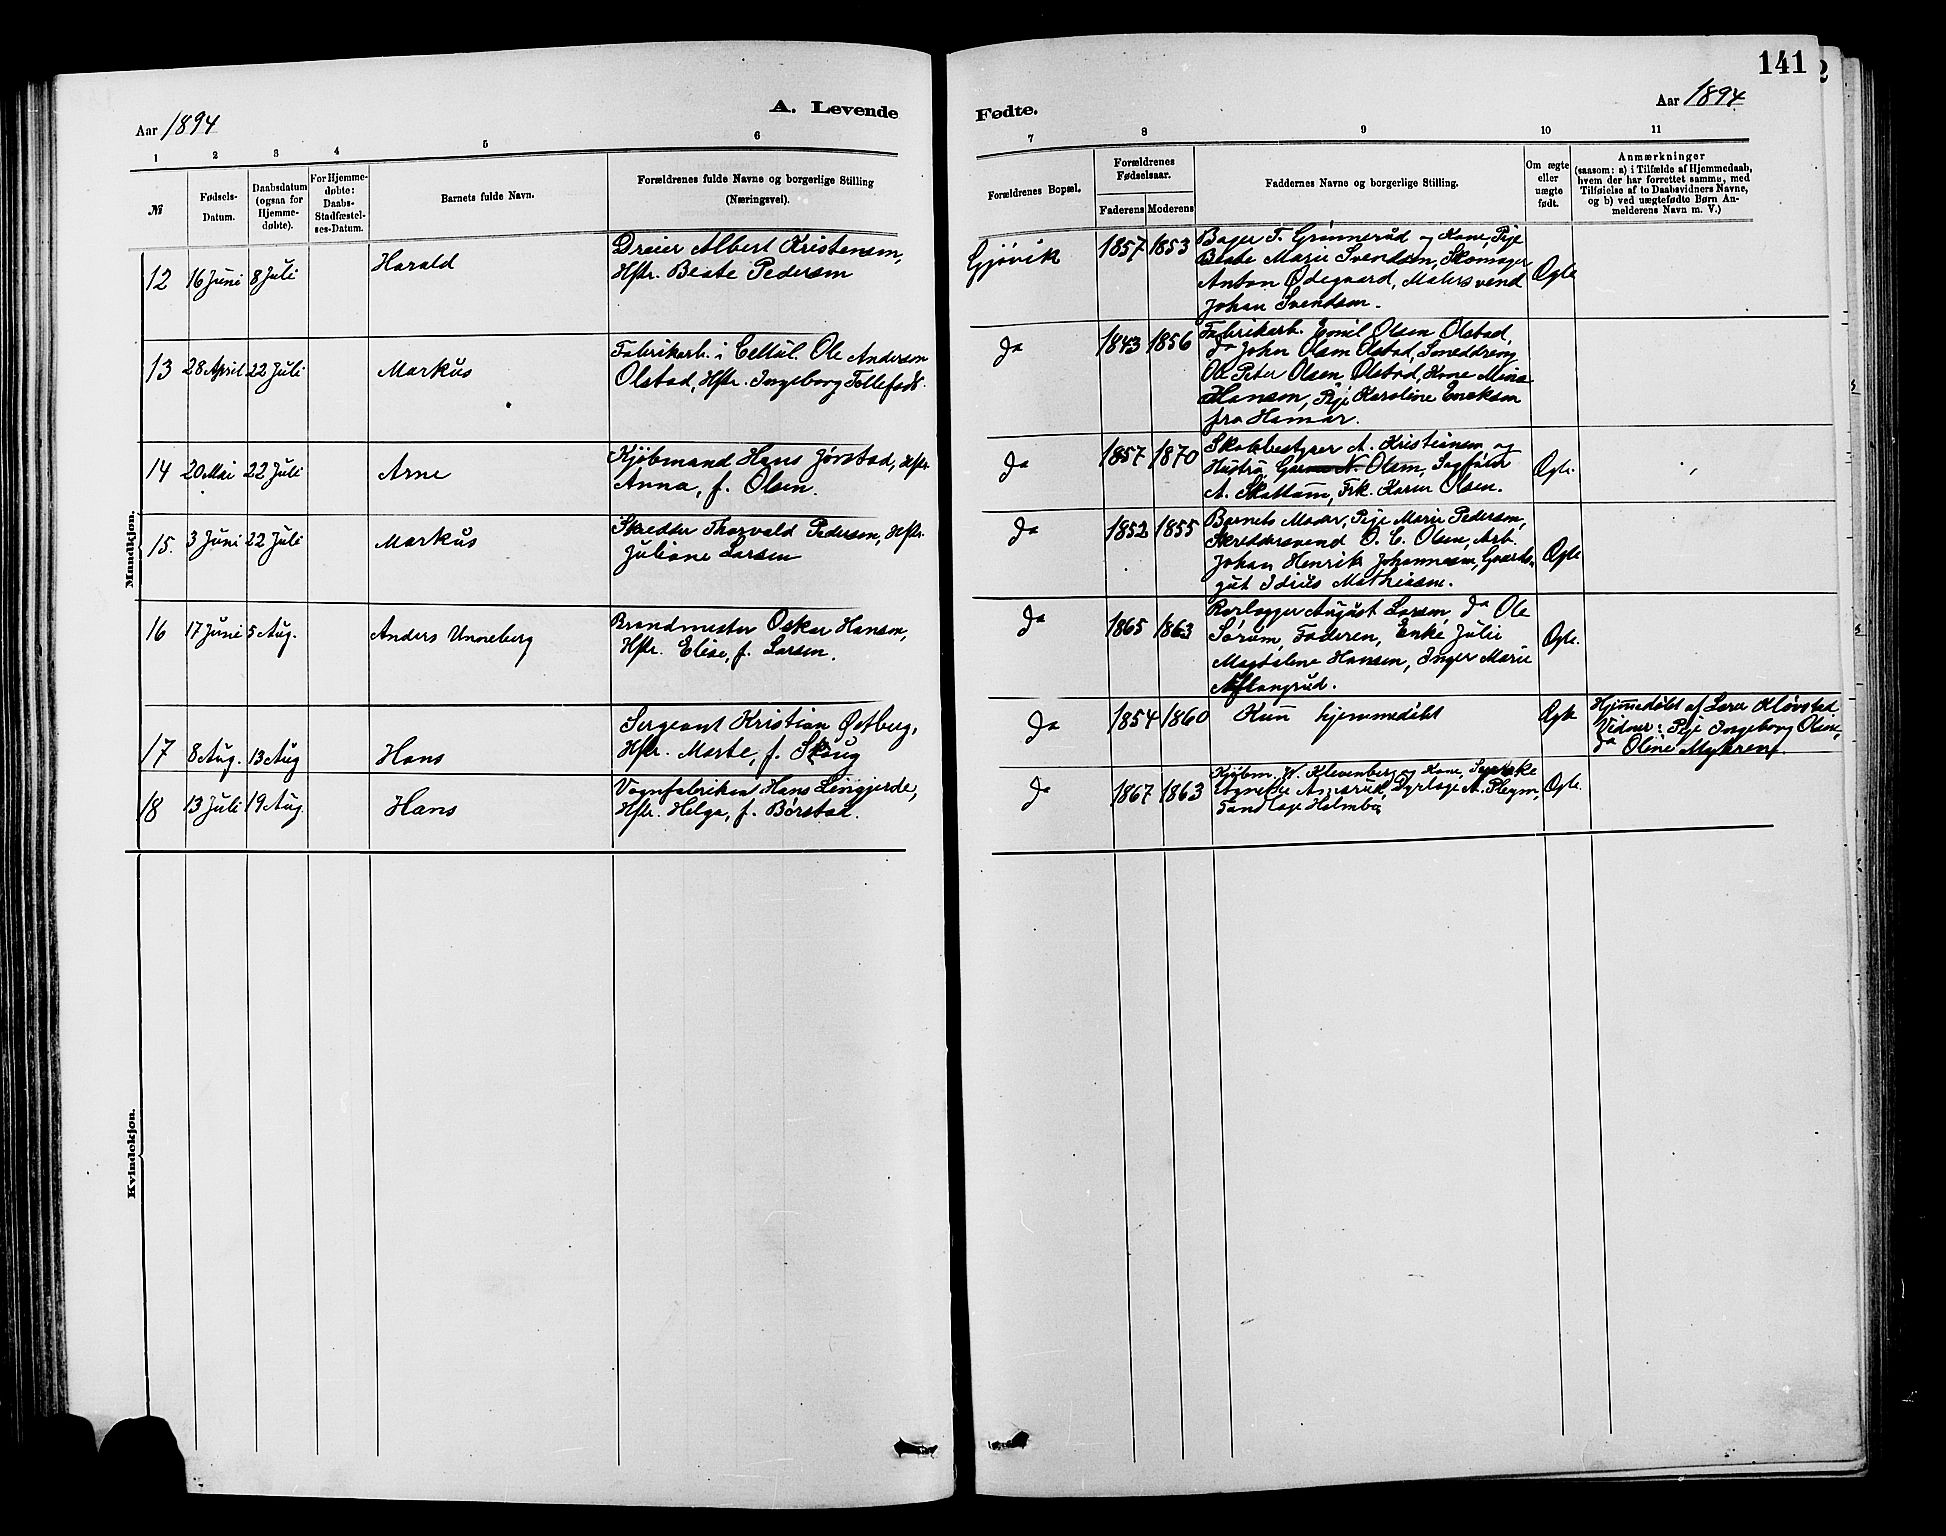 141
Aar 1894
A. Levende
Fødte.
Aar 1894
1 2 3 4 5 6 7 8 9 10 11
№
Fødsels-
Datum.
Daabsdatum
(ogsaa for
Hjemme-
døbte).
For Hjemme-
døbte:
Daabs-
Stadfæstel-
ses-Datum.
Barnets fulde Navn.
Forældrenes fulde Navne og borgerlige Stilling
(Næringsvei).
Forældrenes Bopæl.
Forældrenes
Fødselsaar.
Faderens Moderens
Faddernes Navne og borgerlige Stilling.
Om ægte
eller
uægte
født.
Anmærkninger
(saasom: a) i Tilfælde af Hjemmedaab,
hvem der har forrettet samme, med
Tilføielse af to Daabsvidners Navne,
og b) ved uægtefødte Børn An-
melderens Navn m. V.)
Mandkjøn.
12 16 Juni 8 Juli Harald
Dreier Albert Kristensen,
Hstr. Beate Pedersen
Gjøvik 1857 1853
Bager T. Grinnerud og Kone, Pige
Beate Marie Svendsen, Skomager
Anton Ødegaard, Malersvend
Johan Svendsen.
Ægte
13 28 April 22 Juli Markus
Fabrikarb. i Cellul. Ole Andersen
Olstad, Hstr. Ingeborg Tollefsdt.
do 1843 1856
Fabrikarb. Emil Olsen Olstad,
do John Olsen Olstad, Smeddreng
Ole Peter Olsen Olstad, Kone Mina
Hansen, Pige Karoline Eriksen
fra Hamar.
14 20 Mai 22 Juli Arne
Kjøbmand Hans Jørstad, Hstr.
Anna, f. Olsen.
do 1857 1870
A. Kristiansen og
Hustru, N. Olsen, Sagfører
A. Skattum, Frk. Karen Olsen.
Ægte.
15. 3 Juni 22 Juli Markus
Skredder Thorvald Pedersen, Hstr.
Juliane Larsen
do 1852 1855
Barnets Moder, Pige Marie Pedersen,
Skreddersvend O. C. Olsen, Arb.
Johan Henrik Johannesen, Gaards-
gut Idius Mathiasen.
Ægte
16 17 Juni 5 Aug. Anders Unneberg
Brandmester Oskar Hansen,
Hstr. Elise, f. Larsen.
do 1865 1863
Rørlægger August Larsen, do Ole
Sørum, Faderen, Enke Julie
Magdalene Hansen, Inger Marie
Ægte.
17 8 Aug. 13 Aug Hans
Sergeant Kristian Østberg,
Hstr. Marte, f. Skaug
do 1854 1860
Kun hjemmedøbt
Ægte
Hjemmedøbt af Lærer Kløvstad
Vidner: Pige Ingeborg Olsen,
do Oline Myhren
18 13 Juli 19 Aug. Hans
Vognfabrikea Hans Lingjerde,
Hstr. Helga, f. Børstad.
do 1867 1863
Kjøbm. W. Klevenberg og Kone,
Agnethe Amsrud, Dyrlæge A. Pleym,
Tandlæge Holmboe
Ægte.
Kvindekjøn.